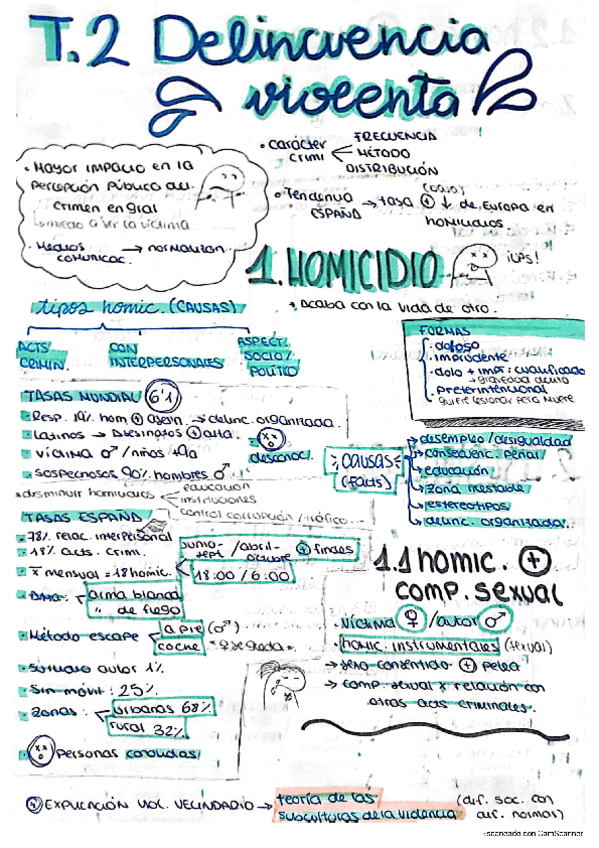 T.2 Delincuencia
violenta
• Mayor impacto en la
percepción pública del
crimen en gral
miedo a ser la víctima
• Medios → normalizan
comunicac.
• carácter
crimi
FRECUENCIA
MÉTODO
DISTRIBUCIÓN
• Tendencia
ESPAÑA → tasa ⊕ ↓ de Europa en
homicidios
1. HOMICIDIO
¡UPS!
* Acaba con la vida de otro.
tipos homic. (CAUSAS)
ACTS
CRIMIN.
CON
INTERPERSONALES
ASPECT.
SOCIO/
POLÍTICO
FORMAS
• doloso
• imprudente
• dolo + impr: cualificado
→ gravedad
• preterintencional
quiere lesionar pero muere
TASAS MUNDIAL 6'1
• Resp. 19% hom ⊕ → delinc. organizada.
• Latinos → asesinatos ⊕ alta.
• víctima ♂ / niños
• sospechosos 90% hombres ♂
desconoc.
* disminuir homicidios
educación
instituciones
control corrupción / tráfico...
CAUSAS
(Facts)
→ desempleo / desigualdad
→ consecuenc. penal
→ educación
→ zona
→ estereotipos
→ delinc. organizadaz.
TASAS ESPAÑA
• 78% relac. interpersonal
• 18% acts. crimi.
• x̄ mensual = 18 homic.
junio-
sept / abril-
octubre ⊕ findes
18:00 / 6:00
• arma blanca
" de fuego
• Método escape
a pie (♂)
coche
• suicidio autor 1%
• Sin móvil: 25%.
• zonas:
urbanas 68%
rural 32%
Personas conocidas
1.1 homic. ⊕
comp. sexual
• Víctima ♀ / autor ♂
• homic. instrumentales (sexual)
→ sexo consentido ⊕ pelea
→ comp. sexual x relación con
otras acts criminales.
EXPLICACIÓN VIOL. VECINDARIO → teoría de las
subculturas de la violencia
(dif. soc. con
dif. normas)
Escaneado con CamScanner